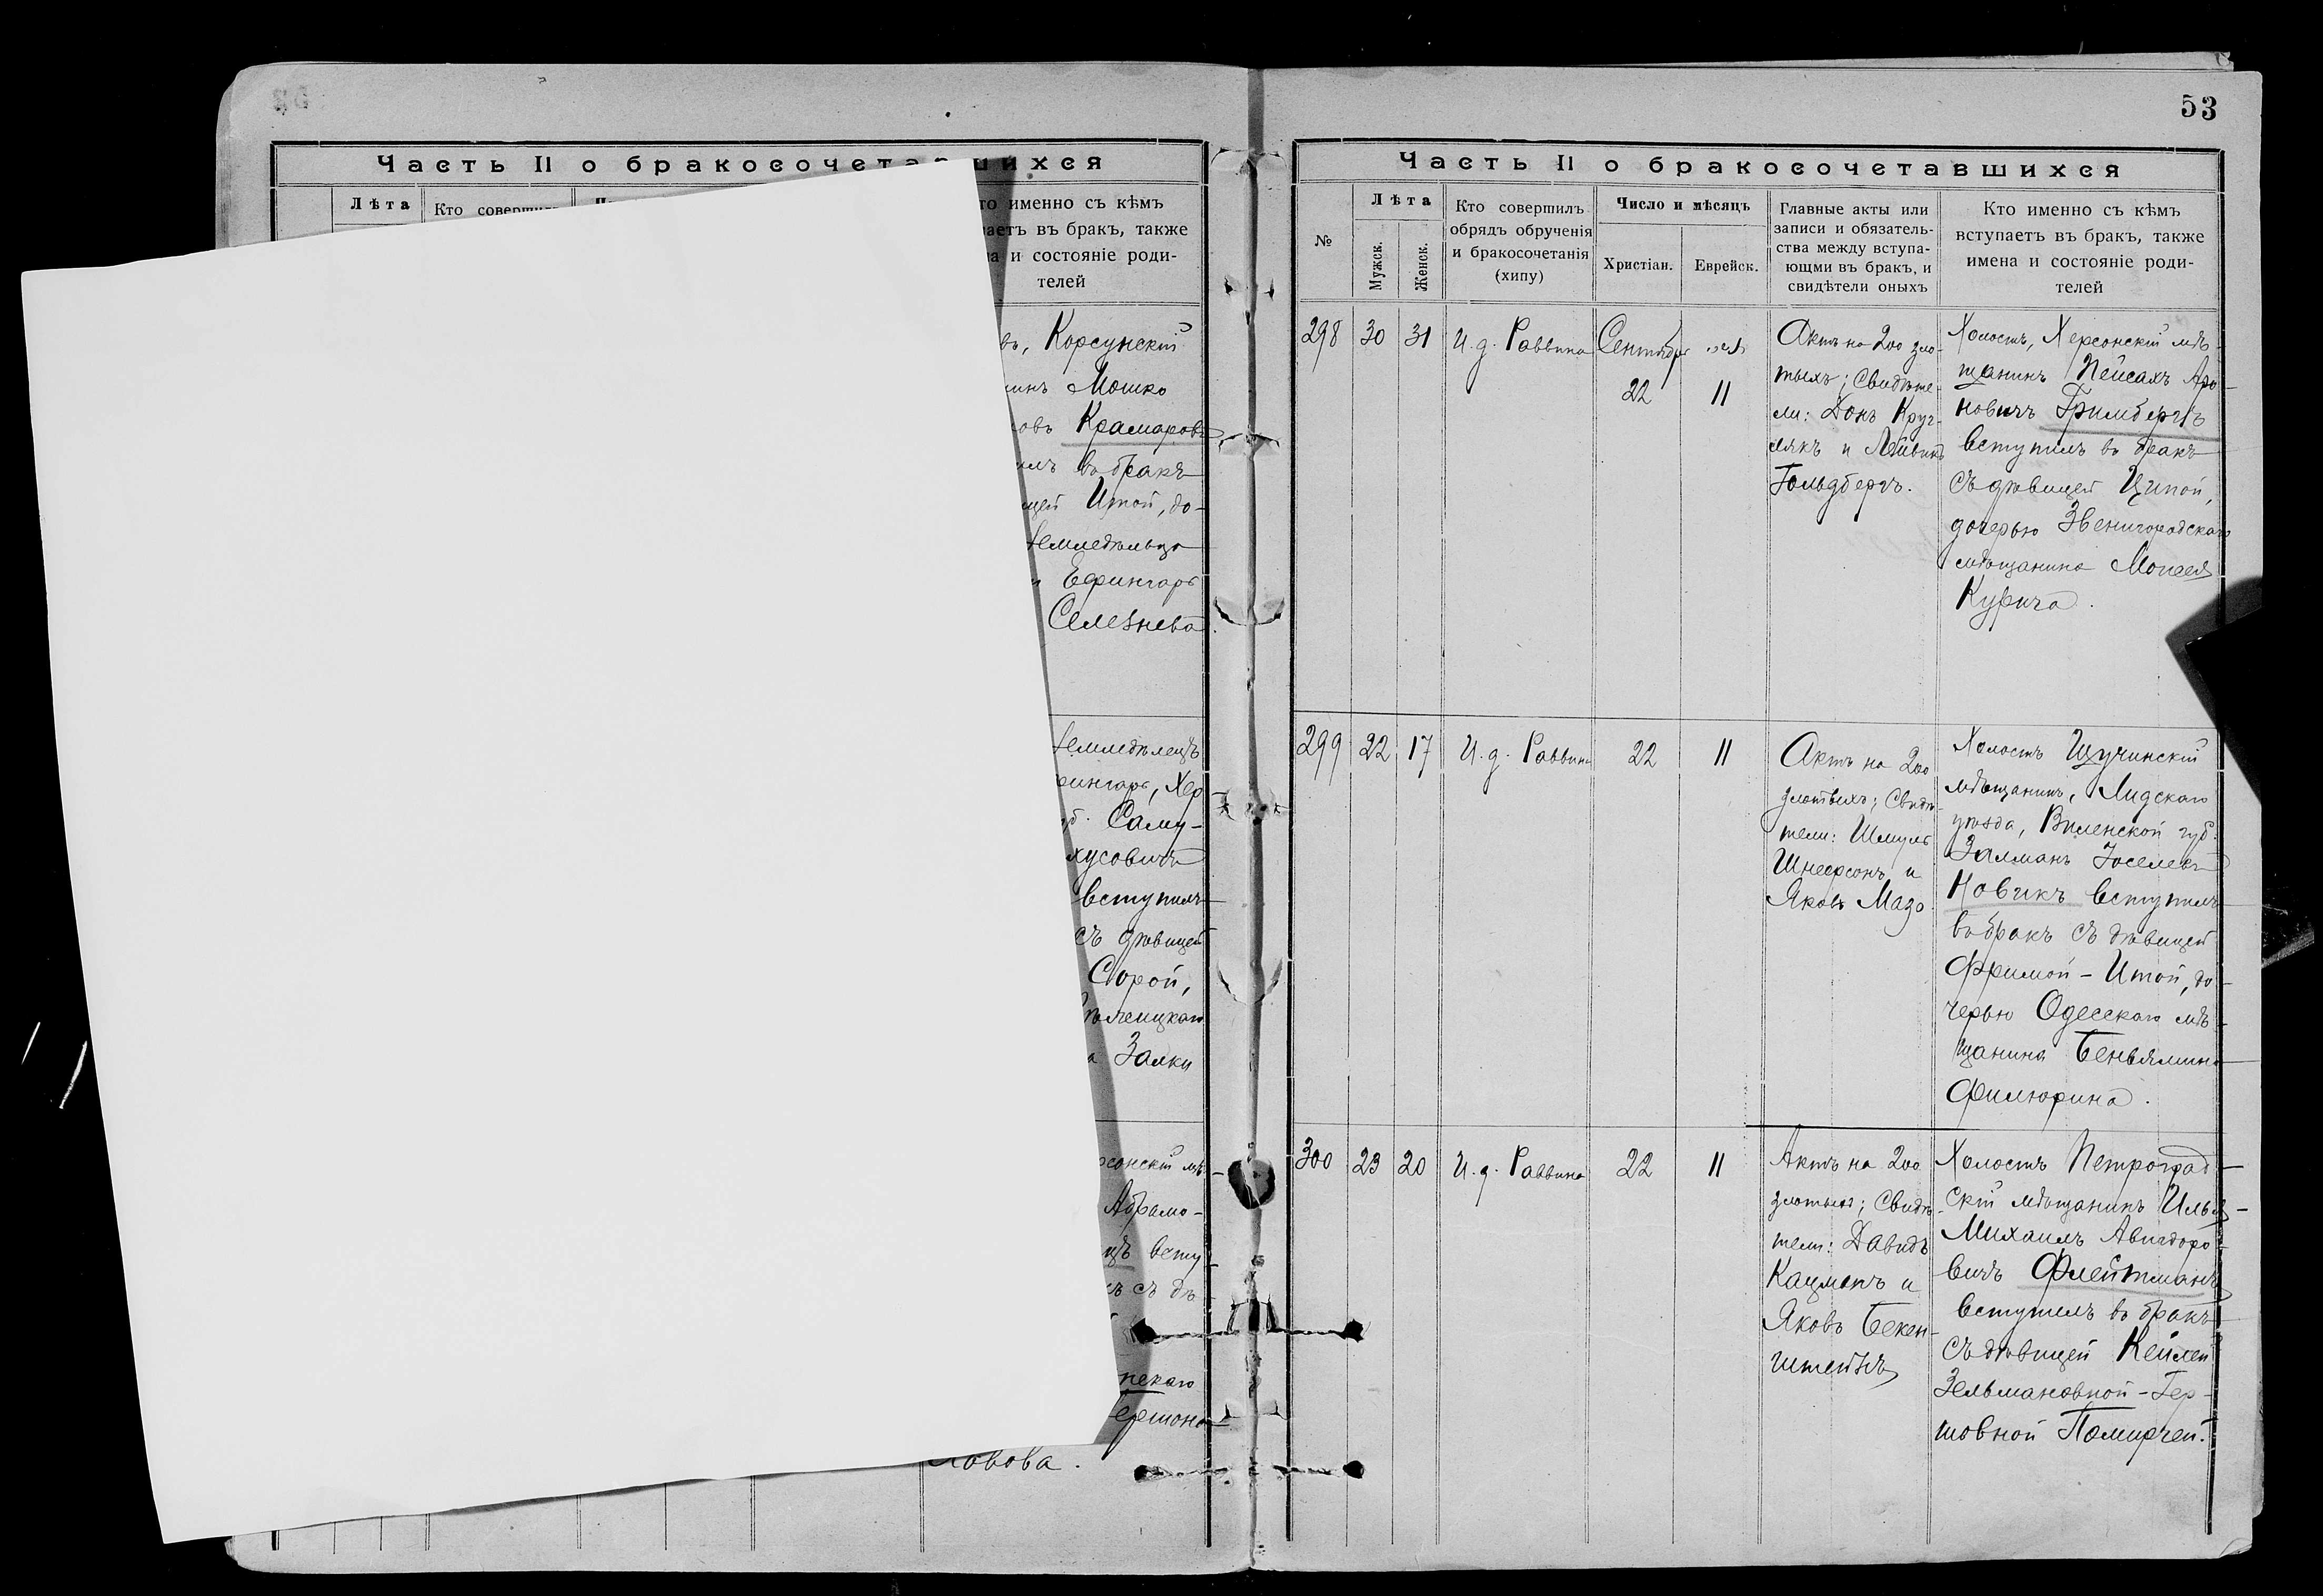 53
Часть II о бракосочетавшихся
Лѣта
Кто
именно съ кѣмъ
въ бракъ, также
и состоянiе роди-
телей
Корсунскiй
Мошко
Крамаровъ
въ бракъ
Итой, до-
земледѣльца
Ефингаръ
Селезнева
земледѣлецъ
Хер
Саму-
вступилъ
съ дѣвицей
Сорой,
Залки
Абрамо-
всту
съ дѣ
Часть II о бракосочетавшихся
№
Лѣта
Мужск.
Женск.
Кто совершилъ
обрядъ обрученiя
и бракосочетанiя
(хипу)
Число и мѣсяцъ
Христiан.
Еврейск.
Главные акты или
записи и обязатель-
ства между вступа-
ющми въ бракъ, и
свидѣтели оныхъ
Кто именно съ кѣмъ
вступаетъ въ бракъ, также
имена и состоянiе роди-
телей
298
30
31
И. д. Раввина
Сентябр
22
11
Актъ на 200 зло-
тыхъ; Свидѣте-
ли: Донъ Круг-
лякъ и Лейвикъ
Гольдбергъ.
Холостъ, Херсонскiй мѣ-
щанинъ Пейсахъ Аро-
новичъ Гримбергъ
вступилъ въ бракъ
съ дѣвицей Ципой,
дочерью Звенигородскаго
мѣщанина Моисея
Курича.
299
22
17
И. д. Раввина
22
11
Актъ на 200
злотыхъ; Свидѣ-
тели: Шмуль
Шнеерсонъ и
Яковъ Мазо
Холостъ Щучинскiй
мѣщанинъ, Лидскаго
уѣзда, Виленской губ.
Залманъ Iоселевъ
Новикъ вступилъ
въ бракъ съ дѣвицей
Фримой-Итой, до-
черью Одесскаго мѣ-
щанина Беньямина
Филюрина.
300
23
20
И. д. Раввина
22
11
Актъ на 200
злотыхъ; Свидѣ-
тели: Давидъ
Кацманъ и
Яковъ Бекен-
штейнъ
Холостъ Петроград-
скiй мѣщанинъ Илья-
Михаилъ Авигдоро-
вичъ Флейтманъ
вступилъ въ бракъ
съ дѣвицей Кейлей
Зельмановной-Гер-
шовной Помирчей.